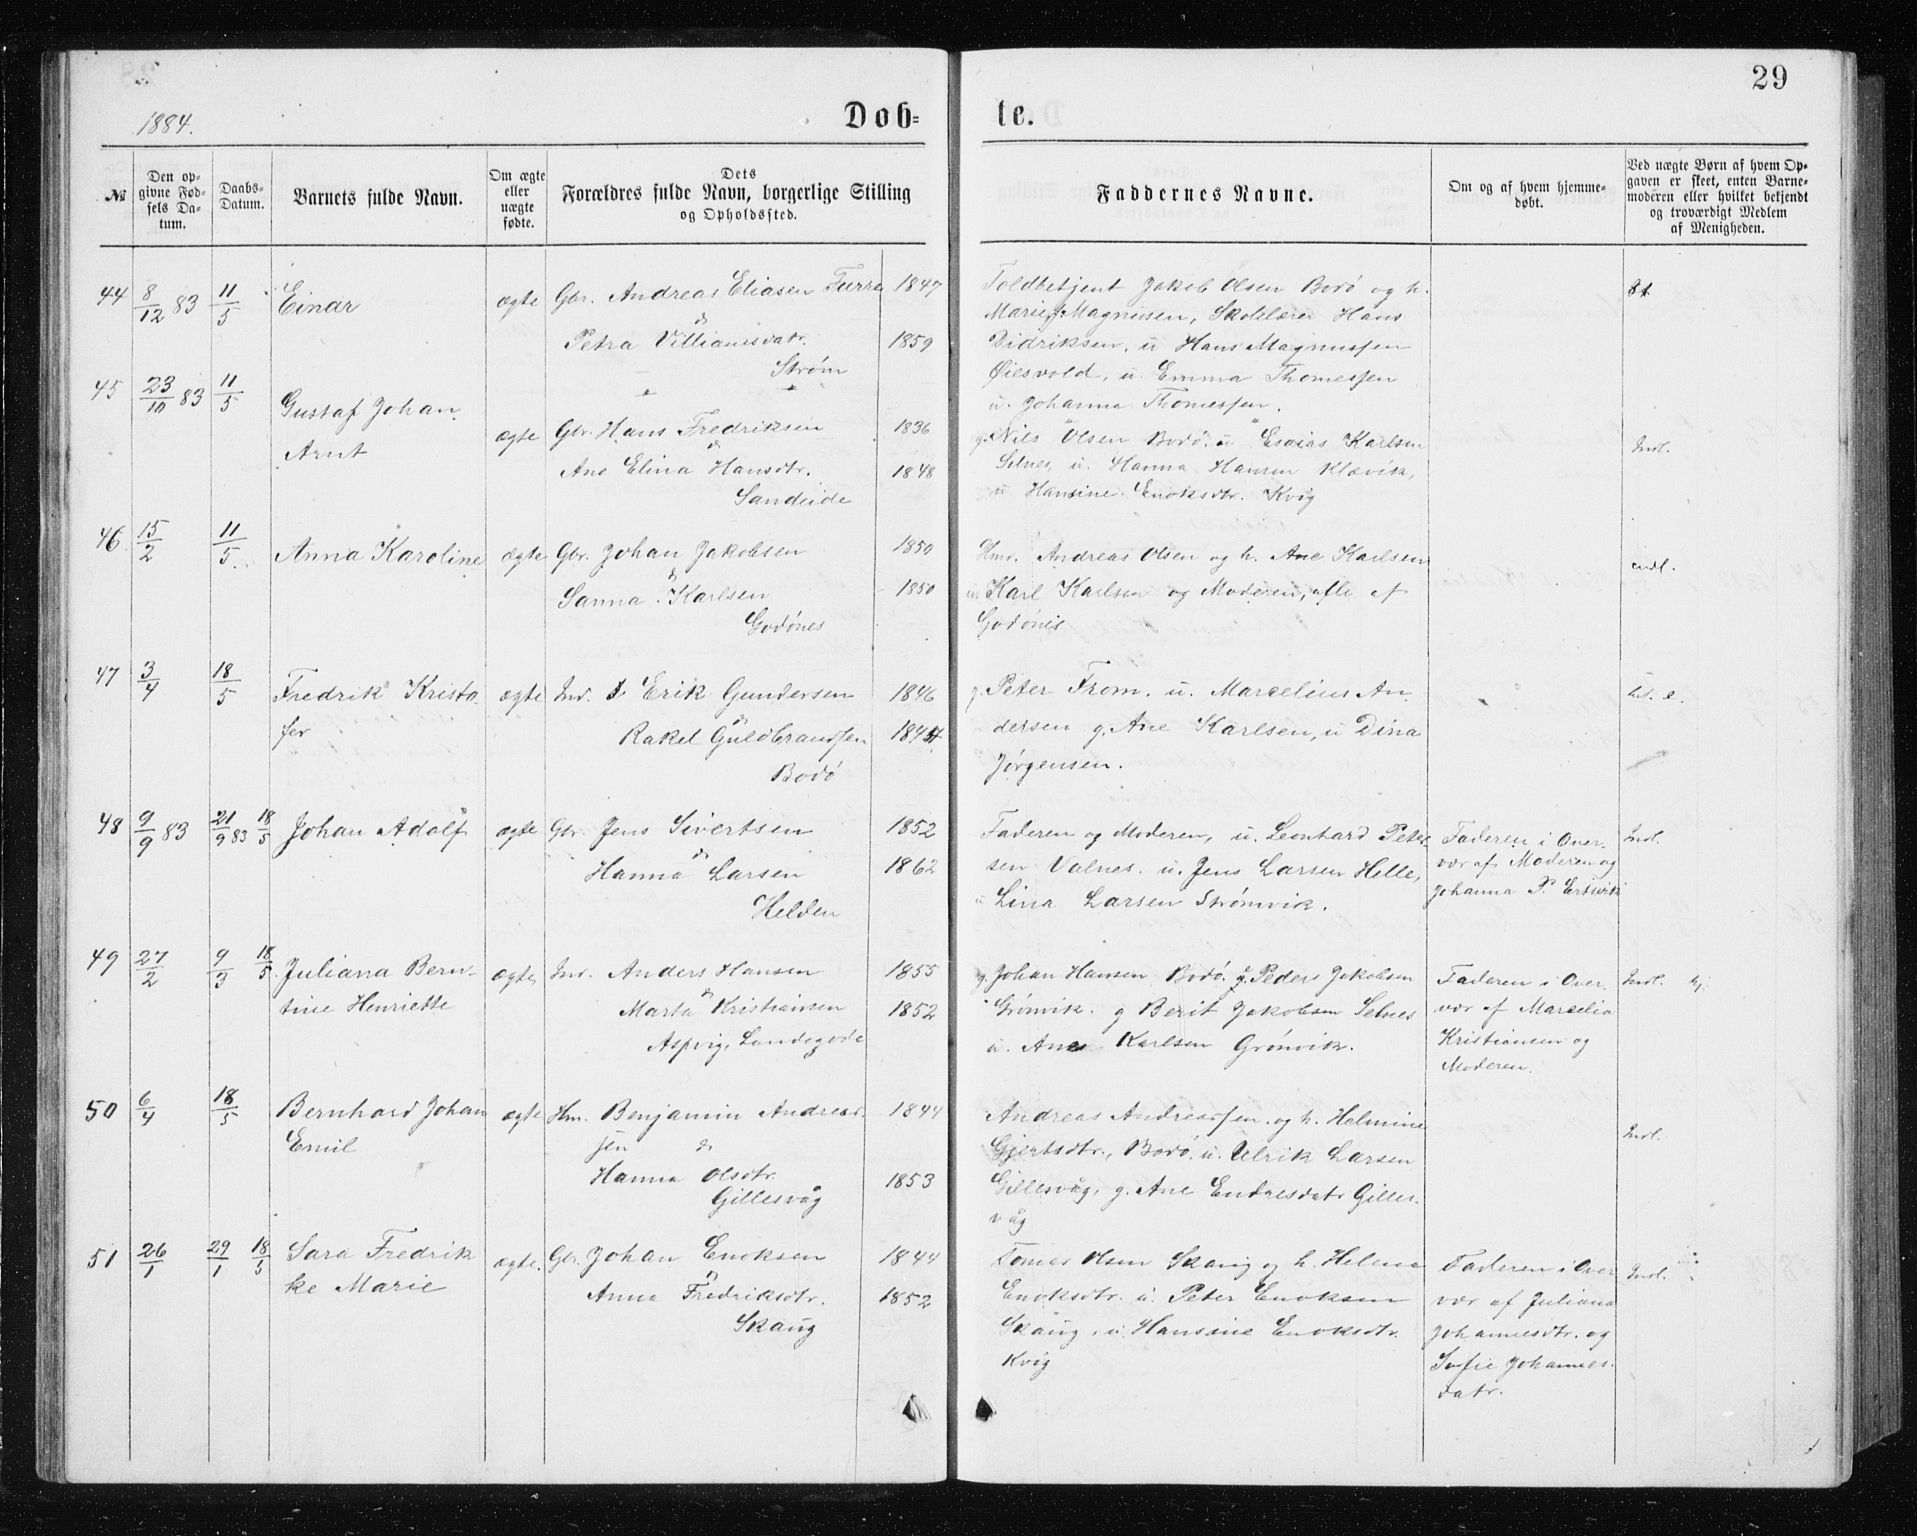 29
1884.
Døb=
te.
№
Den op-
givne Fød-
sels Da-
tum.
Daabs-
Datum.
Barnets fulde Navn.
Om ægte
eller
uægte
fødte.
Dets
Forældres fulde Navn, borgerlige Stilling
og Opholdssted.
Faddernes Navne.
Om og af hvem hjemme-
døbt.
Ved uægte Børn af hvem Op-
gaven er skeet, enten Barne-
moderen eller hvilket bekjendt
og troværdigt Medlem
af Menigheden.
44 8/12 83 11/5 Einar ægte Gbr. Andreas Eliasen Furre 1847
&
Petra Villiamsdatr. 1859
Strøm
Toldbetjent Jakob Olsen Bodø og h.
Marie Magnusen, Skolelærer Hans
Didriksen, u Hans Magnussen
Øiesvold, u. Emma Thomessen
u. Johanna Thomessen.
45 23/10 83 11/5 Gustaf Johan
Arnt
ægte Gbr. Hans Fredriksen 1836
&
Ane Elina Hansdtr. 1848
Sandeide
g. Nils Olsen Bodø. u Esaias Karlsen
Selnes, u. Hanna Hansen Klævik,
u Hansine Enoksdtr. Kvig
Indl.
46 15/2 11/5 Anna Karoline ægte Gbr. Johan Jakobsen 1850
&
Sanna Karlsen 1850
Godønes
Hmr. Andreas Olsen og h. Ane Karlsen
u. Karl Karlsen og Moderen, alle af
Godønes
indl.
47 3/4 18/5 Fredrik Kristo-
fer
ægte Ind. Erik Gundersen 1846
&
Rakel Guldbrandsen
Bodø
g. Peter From. u. Marcelius An-
dersen g. Ane Karlsen, u Dina
Jørgensen.
48 9/9 83 21/9 83 18/5 Johan Adolf ægte Gbr. Jens Sivertsen 1852
&
Hanna Larsen 1862
Helden
Faderen og Moderen, u. Leonhard Peter-
sen Valnes. u. Jens Larsen Helle,
u Lina Larsen Strømvik.
Faderen i Over-
vær af Moderen og
Johanna P. Ertsvik
Indl.
49 27/2 9/3 18/5 Juliana Bern-
tine Henriette
ægte Ind. Anders Hansen 1855
&
Marta Kristiansen 1852
Aspvig, Landegode
g. Johan Hansen Bodø. g. Peder Jakobsen
Grønvik. g Berit Jakobsen Selnes
u. Ane Karlsen Grønvik.
Faderen i Over-
vær af Marcelia
Kristiansen og
Moderen.
Indl.
50 6/4 18/5 Bernhard Johan
Emil
ægte Hm. Benjamin Andreas-
sen & 1844
Hanna Olsdtr. 1853
Gillesvåg
Andreas Andreassen og h. Helmine
Gjertsdtr., Bodø. u. Ulrik Larsen
Gillesvåg, g. Ane Endresdatr Gilles-
våg
Indl.
51 26/1 29/1 18/5 Sara Fredrik
ke Marie
ægte. Gbr. Johan Enoksen 1844
&
Anna Fredriksdtr. 1852
Skaug
Tomas Olsen Skaug og h. Helena
Enoksdtr. u. Peter Enoksen
Skaug, u. Hansine Enoksdtr.
Kvig
Faderen i Over
vær af Juliana
Johannesdtr. og
Sofie Johannes-
datr.
Indl.